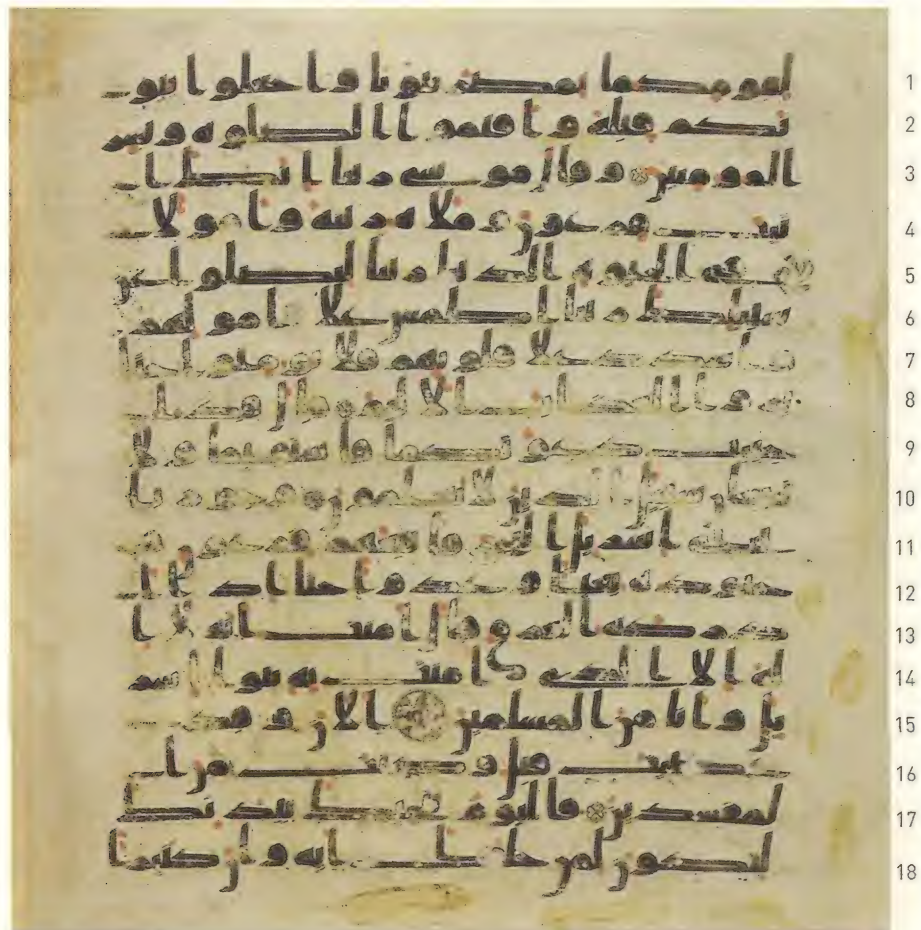 لقومكما بمصر بيوتا واجعلوا بيو 1
تكم قبلة واقيموا الصلوة وبشر 2
المومنين وقال موسى ربنا انك ا 3
تيت فرعون وملاه زينة وامولا 4
في الحيوة الدنيا ربنا ليضلوا عن 5
سبيلك ربنا اطمس على امولهم 6
واشدد على قلوبهم فلا يومنوا حتا 7
يروا العذاب الاليم قال قد ا 8
جيبت دعوتكما فاستقيما ولا 9
تتبعان سبيل الذين لا يعلمون وجوزنا 10
ببني اسريل البحر فاتبعهم فرعون و 11
جنوده بغيا وعدوا حتا اذا ا 12
دركه الغرق قال امنت انه لا ا 13
له الا الذي امنت به بنوا اسر 14
يل وانا من المسلمين الان وقد 15
عصيت قبل وكنت من ا 16
لمفسدين فاليوم ننجيك ببدنك 17
لتكون لمن خلفك اية وان كثيرا 18